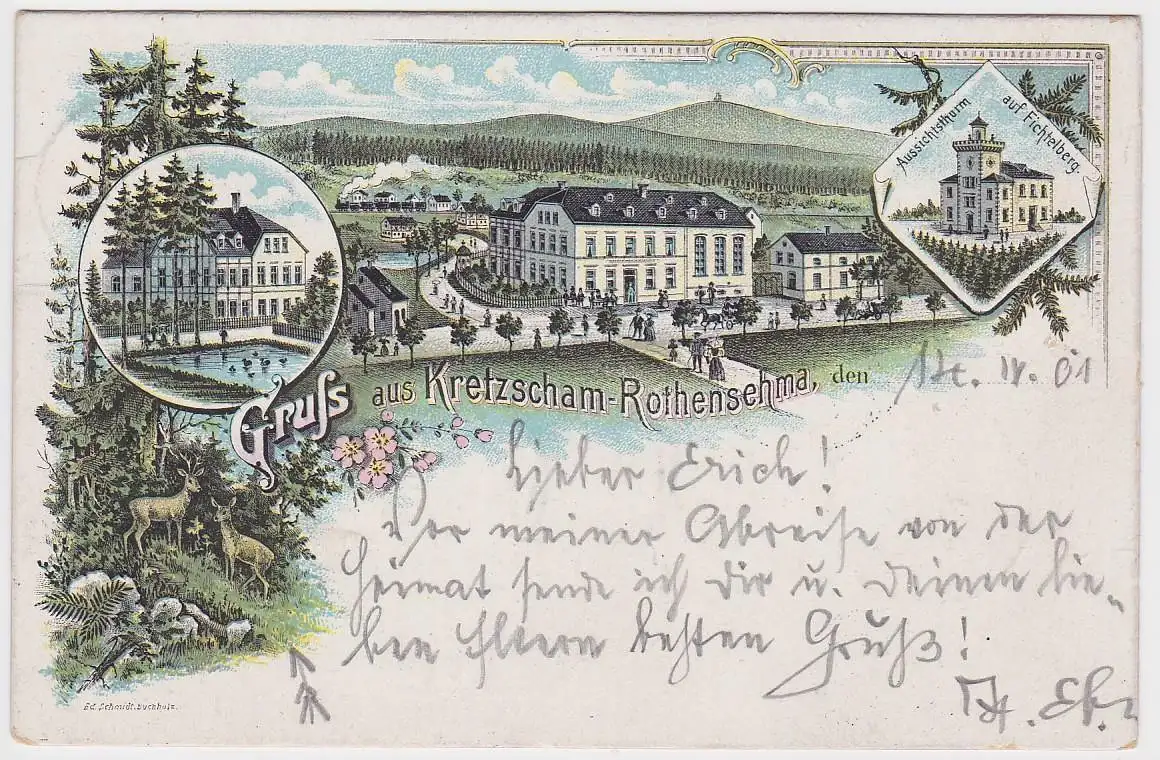 Aussichtsthurm
auf Fichtelberg.
Gruſs aus Kretzscham-Rothensehma, den
IV. 01
Lieber Erich!
Vor meiner Abreise von der
Heimat sende ich Dir u. Deinen lie-
ben Eltern besten Gruß!
Ed. Schmidt, Buchholz.